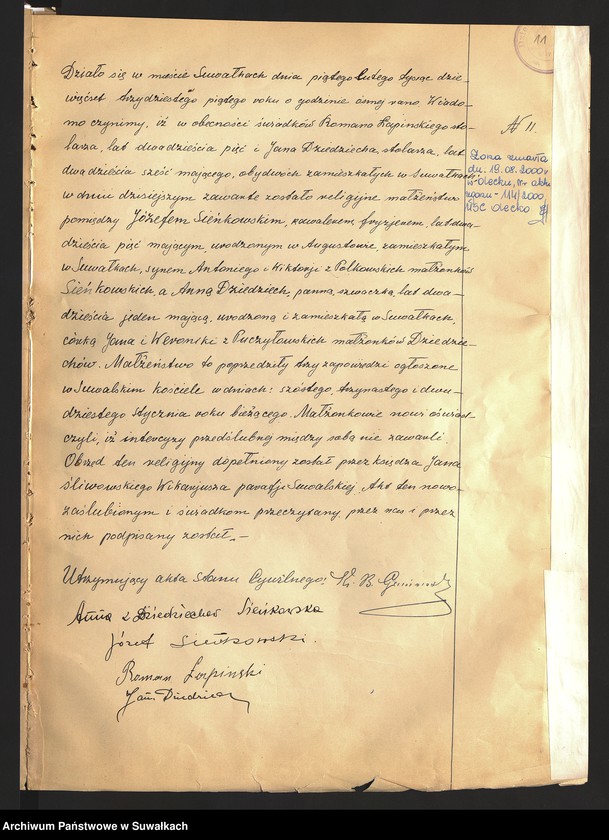 11
№ 11.
Działo się w mieście Suwałkach dnia piątego lutego tysiąc dzie-
więćset trzydziestego piątego roku o godzinie ósmej rano. Wiado-
mo czynimy, iż w obecności świadków Romana Łapinskiego sto-
larza, lat dwadzieścia pięć i Jana Dziedziecha, stolarza, lat
dwadzieścia sześć mającego, obydwóch zamieszkałych w Suwałkach,
w dniu dzisiejszym zawarte zostało religijne małżeństwo
pomiędzy Józefem Sieńkowskim, kawalerem, fryzjerem, lat dwa-
dzieścia pięć mającym, urodzonym w Augustowie, zamieszkałym
w Suwałkach, synem Antoniego i Wiktorji z Polkowskich małżonków
Sieńkowskich, a Anną Dziedziech, panną, szwaczką, lat dwa-
dzieścia jeden mającą, urodzoną i zamieszkałą w Suwałkach,
córką Jana i Weroniki z Puczyłowskich małżonków Dziedzie-
chów. Małżeństwo to poprzedziły trzy zapowiedzi ogłoszone
w Suwalskim kościele w dniach: szóstego, trzynastego i dwu-
dziestego stycznia roku bieżącego. Małżonkowie nowi oświad-
czyli, iż intercyzy przedślubnej między sobą nie zawarli.
Obrzęd ten religijny dopełniony został przez księdza Jana
Śliwowskiego Wikarjusza parafji Suwalskiej. Akt ten nowo-
zaślubionym i świadkom przeczytany, przez nas i przez
nich podpisany został.—
Utrzymujący akta stanu Cywilnego: Ks. B.
Anna z Dziedziechów Sieńkowska
Józef Sieńkowski.
Roman Łapinski
Jan Dziedziech
Żona zmarła
dn. 19.08.2000 r
w Olecku, nr aktu
zgonu - 114/2000
USC Olecko
Archiwum Państwowe w Suwałkach